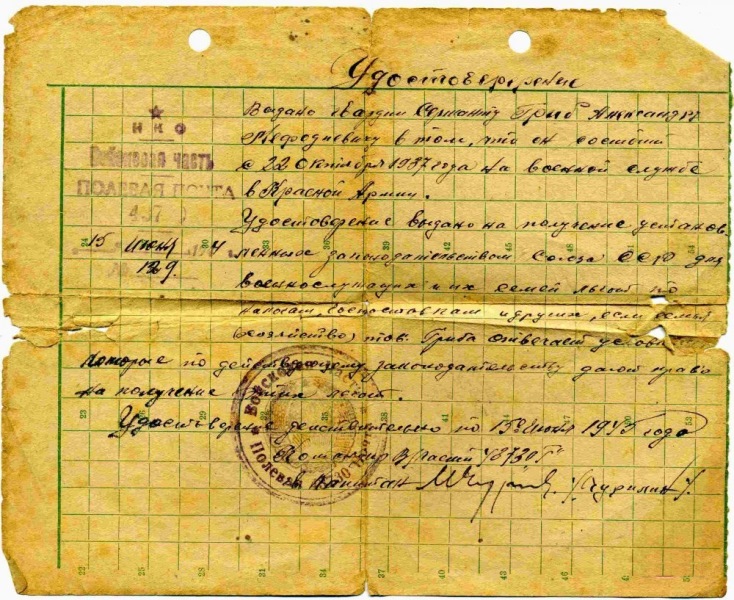 Удостоверение
Н К О
Войсковая часть
ПОЛЕВАЯ ПОЧТА
15 Июня
129.
Выдано Гвардии Сержанту Гриб Александру
Мефодиевичу в том, что он состоит
с 22 октября 1937 года на военной службе
в Красной Армии.
Удостоверение выдано на получение установ
ленное законодательством Союза ССР для
военнослужащих и их семей льгот по
налогам, госпоставкам и других, если семья
(хозяйство) тов. Гриба отвечает условиям
которые по действующему законодательству дают право
на получение этих льгот.
Удостоверение действительно по 15 Июня 1945 года
Командир В/части 48730 "Г"
Капитан /Чурилин/
24 30 33 39 42 51 54
22 23 25 29 31 32 34 35 37 38 40 41 46 47 49 53